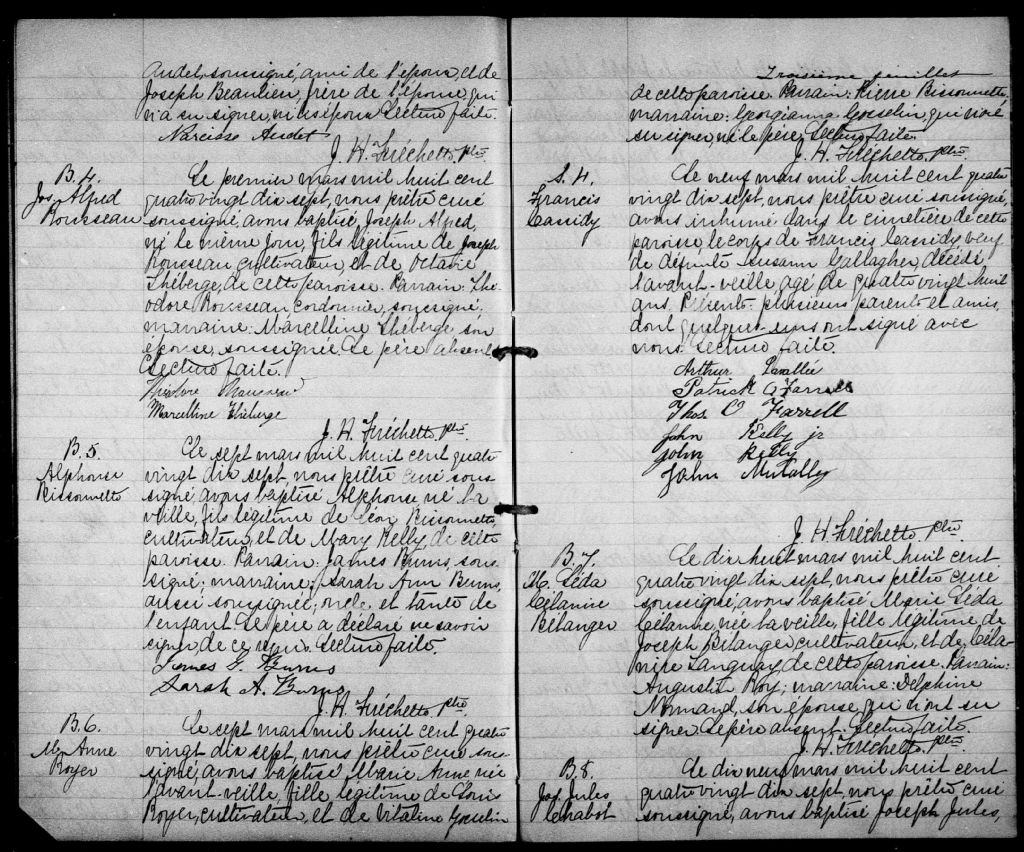 Audet, soussigné, ami de l'époux, et de
Joseph Beaulieu, frère de l'épouse, qui
n'a su signer, ni les époux. Lecture faite.
Narcisse Audet
J. H. Fréchette, ptre
B. 4.
Jos. Alfred
Rousseau
Le premier mars mil huit cent
quatre vingt dix sept, nous prêtre curé
soussigné, avons baptisé, Joseph, Alfred,
né le même jour, fils légitime de Joseph
Rousseau cultivateur, et de Octavie
Théberge, de cette paroisse. Parrain: Thé-
odore Rousseau, cordonnier, soussigné;
marraine: Marcelline Théberge son
épouse, soussignée. Le père absent.
Lecture faite.
Théodore Rousseau
Marcelline Théberge
J. H. Fréchette, ptre
B. 5.
Alphonse
Bissonnette
Le sept mars mil huit cent quatre
vingt dix sept, nous prêtre curé sous-
signé avons baptisé Alphonse né la
veille, fils légitime de Léon Bissonnette
cultivateur, et de Mary Kelly de cette
paroisse. Parrain: James Burns, sous-
signé; marraine: Sarah Ann Burns,
aussi soussignée; oncle et tante de
l'enfant. Le père a déclaré ne savoir
signer, de ce requis. Lecture faite.
James F. Burns
Sarah A. Burns
J. H. Fréchette, ptre
B. 6.
M. Anne
Royer
Le sept mars mil huit cent quatre
vingt dix sept, nous prêtre curé sous-
signé, avons baptisé Marie Anne née
l'avant-veille, fille légitime de Louis
Royer, cultivateur, et de Vitaline Gosselin
Troisième feuillet
de cette paroisse. Parrain: Pierre Bissonnette,
marraine: Georgianna Gosselin, qui n'ont
su signer, ni le père. Lecture faite.
J. H. Fréchette, ptre.
S. 4.
Francis
Cassidy
Le neuf mars mil huit cent quatre
vingt dix sept, nous prêtre curé soussigné,
avons inhumé dans le cimetière de cette
paroisse, le corps de Francis Cassidy veuf
de défunte Susann Gallagher, décédé
l'avant-veille, agé de quatre vingt huit
ans. Présents: plusieurs parents et amis,
dont quelques-uns ont signé avec
nous. Lecture faite.
Arthur Lavallée
Patrick O Farrell
Thos O Farrell
John Kelly jr
John Kelly
John McNally
J. H. Fréchette, ptre
B. 7.
M. Léda
Célanire
Bélanger
Le dix huit mars mil huit cent
quatre vingt dix sept, nous prêtre curé
soussigné, avons baptisé Marie Léda
Célanire, née la veille, fille légitime de
Joseph Bélanger, cultivateur, et de Céla-
nire Tanguay, de cette paroisse. Parrain:
Augustin Roy; marraine: Delphine
Normand, son épouse, qui n'ont su
signer. Le père absent. Lecture faite.
J. H. Fréchette, ptre.
B. 8.
Jos. Jules
Chabot
Le dix neuf mars mil huit cent
quatre vingt dix sept, nous prêtre curé
soussigné, avons baptisé Joseph Jules,